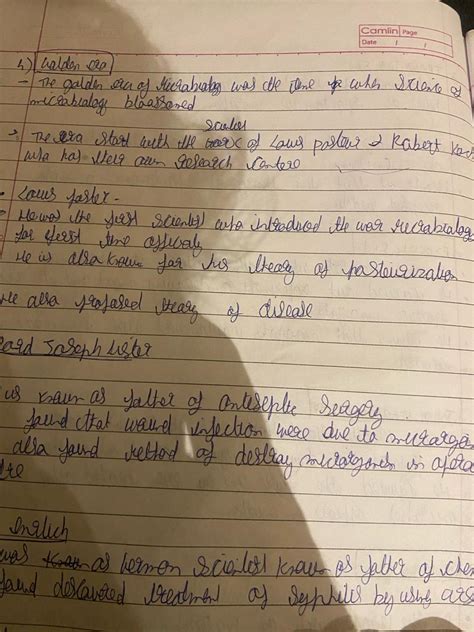 Camlin Page
Date / /
4) Golden era
- The golden era of Microbiology was the time when Science of
microbiology bloossomed
Scientist
The era start with the of Lous pasteur & Robert
who has their own research centere
Lous paster -
He was the first scientist who introduced the war Microbiology
for first time officialy
He is also known for his theory of pasteurization
He also proposed theory of disease
Joseph Lister
known as father of antiseptic Surgery
found that wound infection were due to microrgan
also found method of destroy microrganism in
Enrlich
was as Germon Scientist known as father of
found descovered treatment of syphilis by using